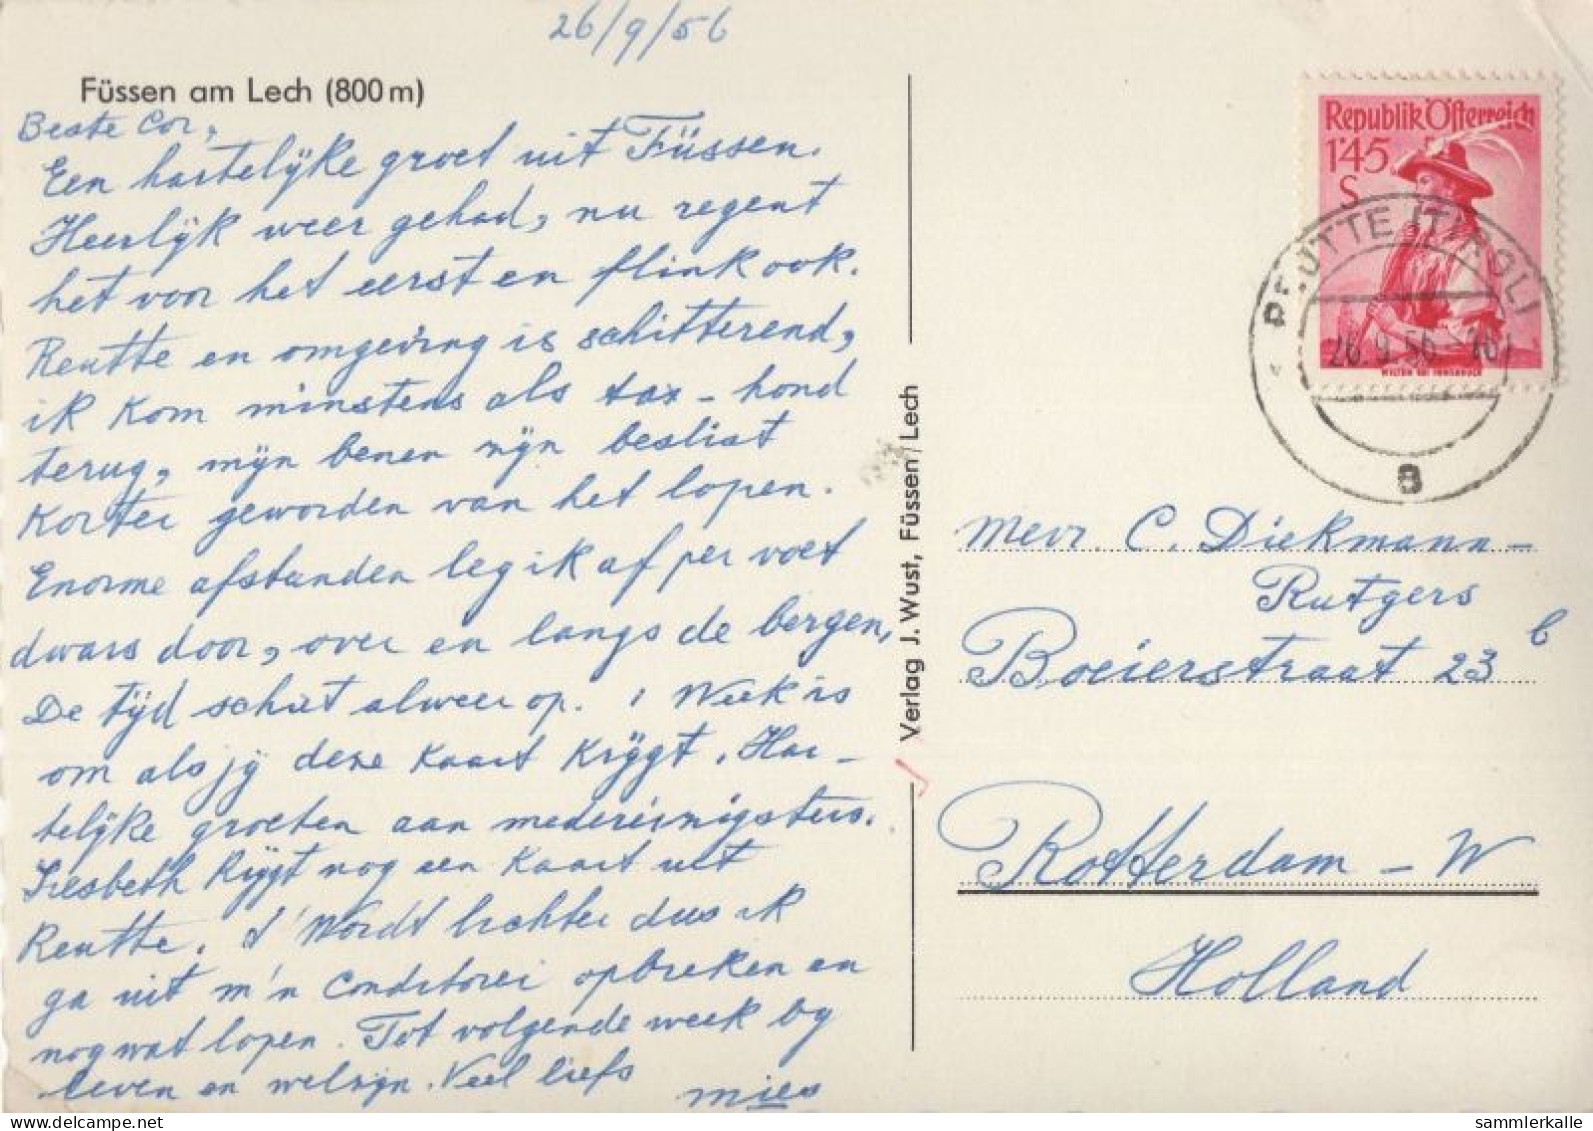 26/9/56
Füssen am Lech (800 m)
Beste Cor,
Een hartelijke groet uit Füssen.
Heerlijk weer gehad, nu regent
het voor het eerst en flink ook.
Reutte en omgeving is schitterend,
ik kom minstens als tax-hond
terug, mijn benen zijn beslist
korter geworden van het lopen.
Enorme afstanden leg ik af per voet
dwars door, over en langs de bergen,
De tijd schiet alweer op. 1 Week is
om als jij deze kaart krijgt. Har-
telijke groeten aan medereizigsters.
Liesbeth krijgt nog een kaart uit
Reutte. 't Wordt lichter dus ik
ga uit m'n conditorei opbreken en
nog wat lopen. Tot volgende week bij
leven en welzijn. Veel liefs
Mies
Verlag J. Wust, Füssen/Lech
Republik Österreich
1'45
S
WILTEN BEI INNSBRUCK
REUTTE (TIROL)
26.9.56
a
Mevr. C. Diekmann-
Rutgers
Boeierstraat 23 b
Rotterdam-W
Holland
delcampe.net
sammlerkalle